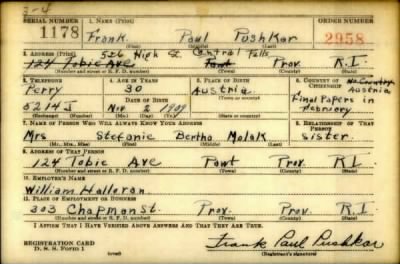 3-4
SERIAL NUMBER 1. NAME (Print) ORDER NUMBER
1178 Frank Paul Pushkar 2958
(First) (Middle) (Last)
2. ADDRESS (Print) 526 High St. Central Falls
124 Tobie Ave Pawt Prov. R.I.
(Number and street or R. F. D. number) (Town) (County) (State)
3. TELEPHONE 4. AGE IN YEARS 5. PLACE OF BIRTH 6. COUNTRY OF CITIZENSHIP
Perry 30 Austria No Country Austria
5214 J DATE OF BIRTH Nov 2 1909 Final Papers in February
(Exchange) (Number) (Mo.) (Day) (Yr.) (Town or county) (State or country)
7. NAME OF PERSON WHO WILL ALWAYS KNOW YOUR ADDRESS 8. RELATIONSHIP OF THAT PERSON
Mrs Stefanie Bertha Molak sister.
(Mr., Mrs., Miss) (First) (Middle) (Last)
9. ADDRESS OF THAT PERSON
124 Tobie Ave Pawt Prov. R.I.
(Number and street or R. F. D. number) (Town) (County) (State)
10. EMPLOYER'S NAME
William Halloran
11. PLACE OF EMPLOYMENT OR BUSINESS
303 Chapman St. Prov. Prov. R.I.
(Number and street or R. F. D. number) (Town) (County) (State)
I AFFIRM THAT I HAVE VERIFIED ABOVE ANSWERS AND THAT THEY ARE TRUE.
REGISTRATION CARD
D. S. S. Form 1
Frank Paul Pushkar
(Registrant's signature)